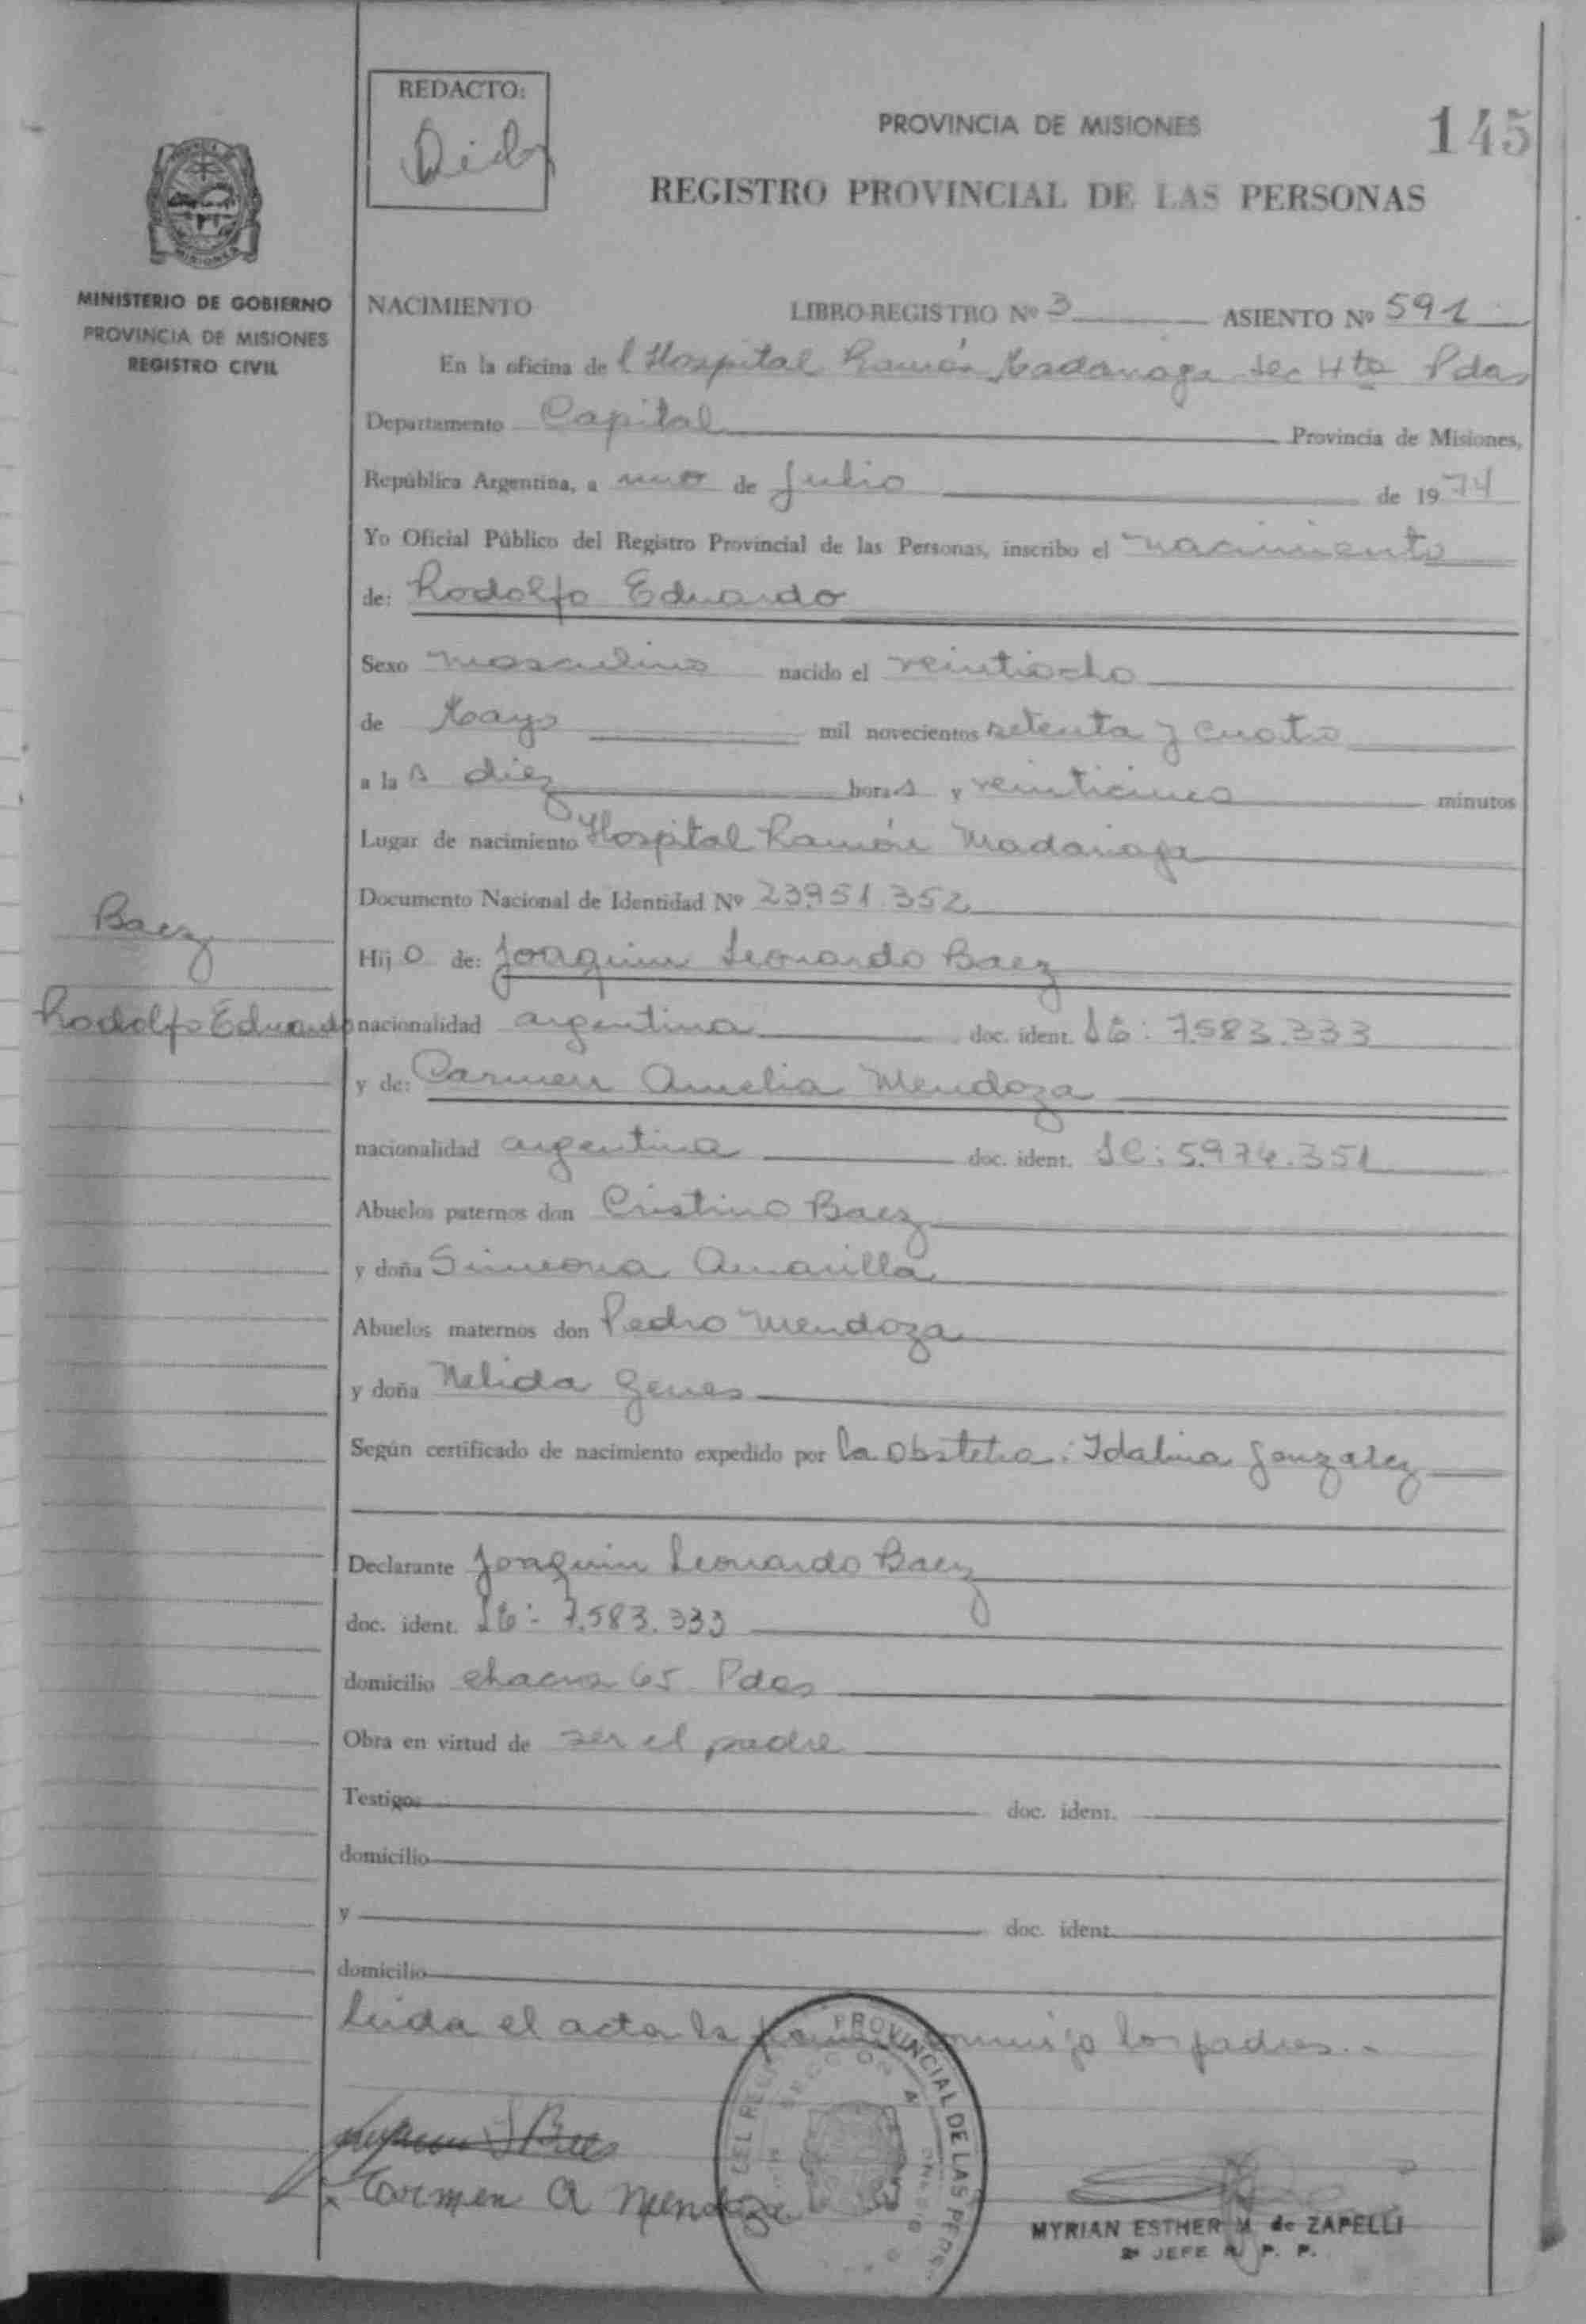 REDACTO:
PROVINCIA DE MISIONES
145
REGISTRO PROVINCIAL DE LAS PERSONAS
MINISTERIO DE GOBIERNO
PROVINCIA DE MISIONES
REGISTRO CIVIL
NACIMIENTO LIBRO-REGISTRO Nº 3 ASIENTO Nº 591
En la oficina de l Hospital Ramón Madariaga Sec 4ta Pdas
Departamento Capital Provincia de Misiones,
República Argentina, a uno de Julio de 1974
Yo Oficial Público del Registro Provincial de las Personas, inscribo el nacimiento
de: Rodolfo Eduardo
Sexo masculino nacido el veintiocho
de Mayo mil novecientos setenta y cuatro
a las diez horas y veinticinco minutos
Lugar de nacimiento Hospital Ramón Madariaga
Documento Nacional de Identidad Nº 23.951.352
Baez
Hijo de: Joaquin Leonardo Baez
Rodolfo Eduardo
nacionalidad argentina doc. ident. LE: 7.583.333
y de: Carmen Amelia Mendoza
nacionalidad argentina doc. ident. LC: 5.974.351
Abuelos paternos don Cristino Baez
y doña Simeona Amarilla
Abuelos maternos don Pedro Mendoza
y doña Nelida Genes
Según certificado de nacimiento expedido por la Obstetra: Idalina Gonzalez
Declarante Joaquin Leonardo Baez
doc. ident. LE: 7.583.333
domicilio chacra 65 Pdas
Obra en virtud de ser el padre
Testigos doc. ident.
domicilio
y doc. ident.
domicilio
Leida el acta la conmigo los padres.-
PROVINCIAL DE LAS PERS
Carmen A Mendoza
MYRIAN ESTHER M. de ZAPELLI
2º JEFE R. P. P.